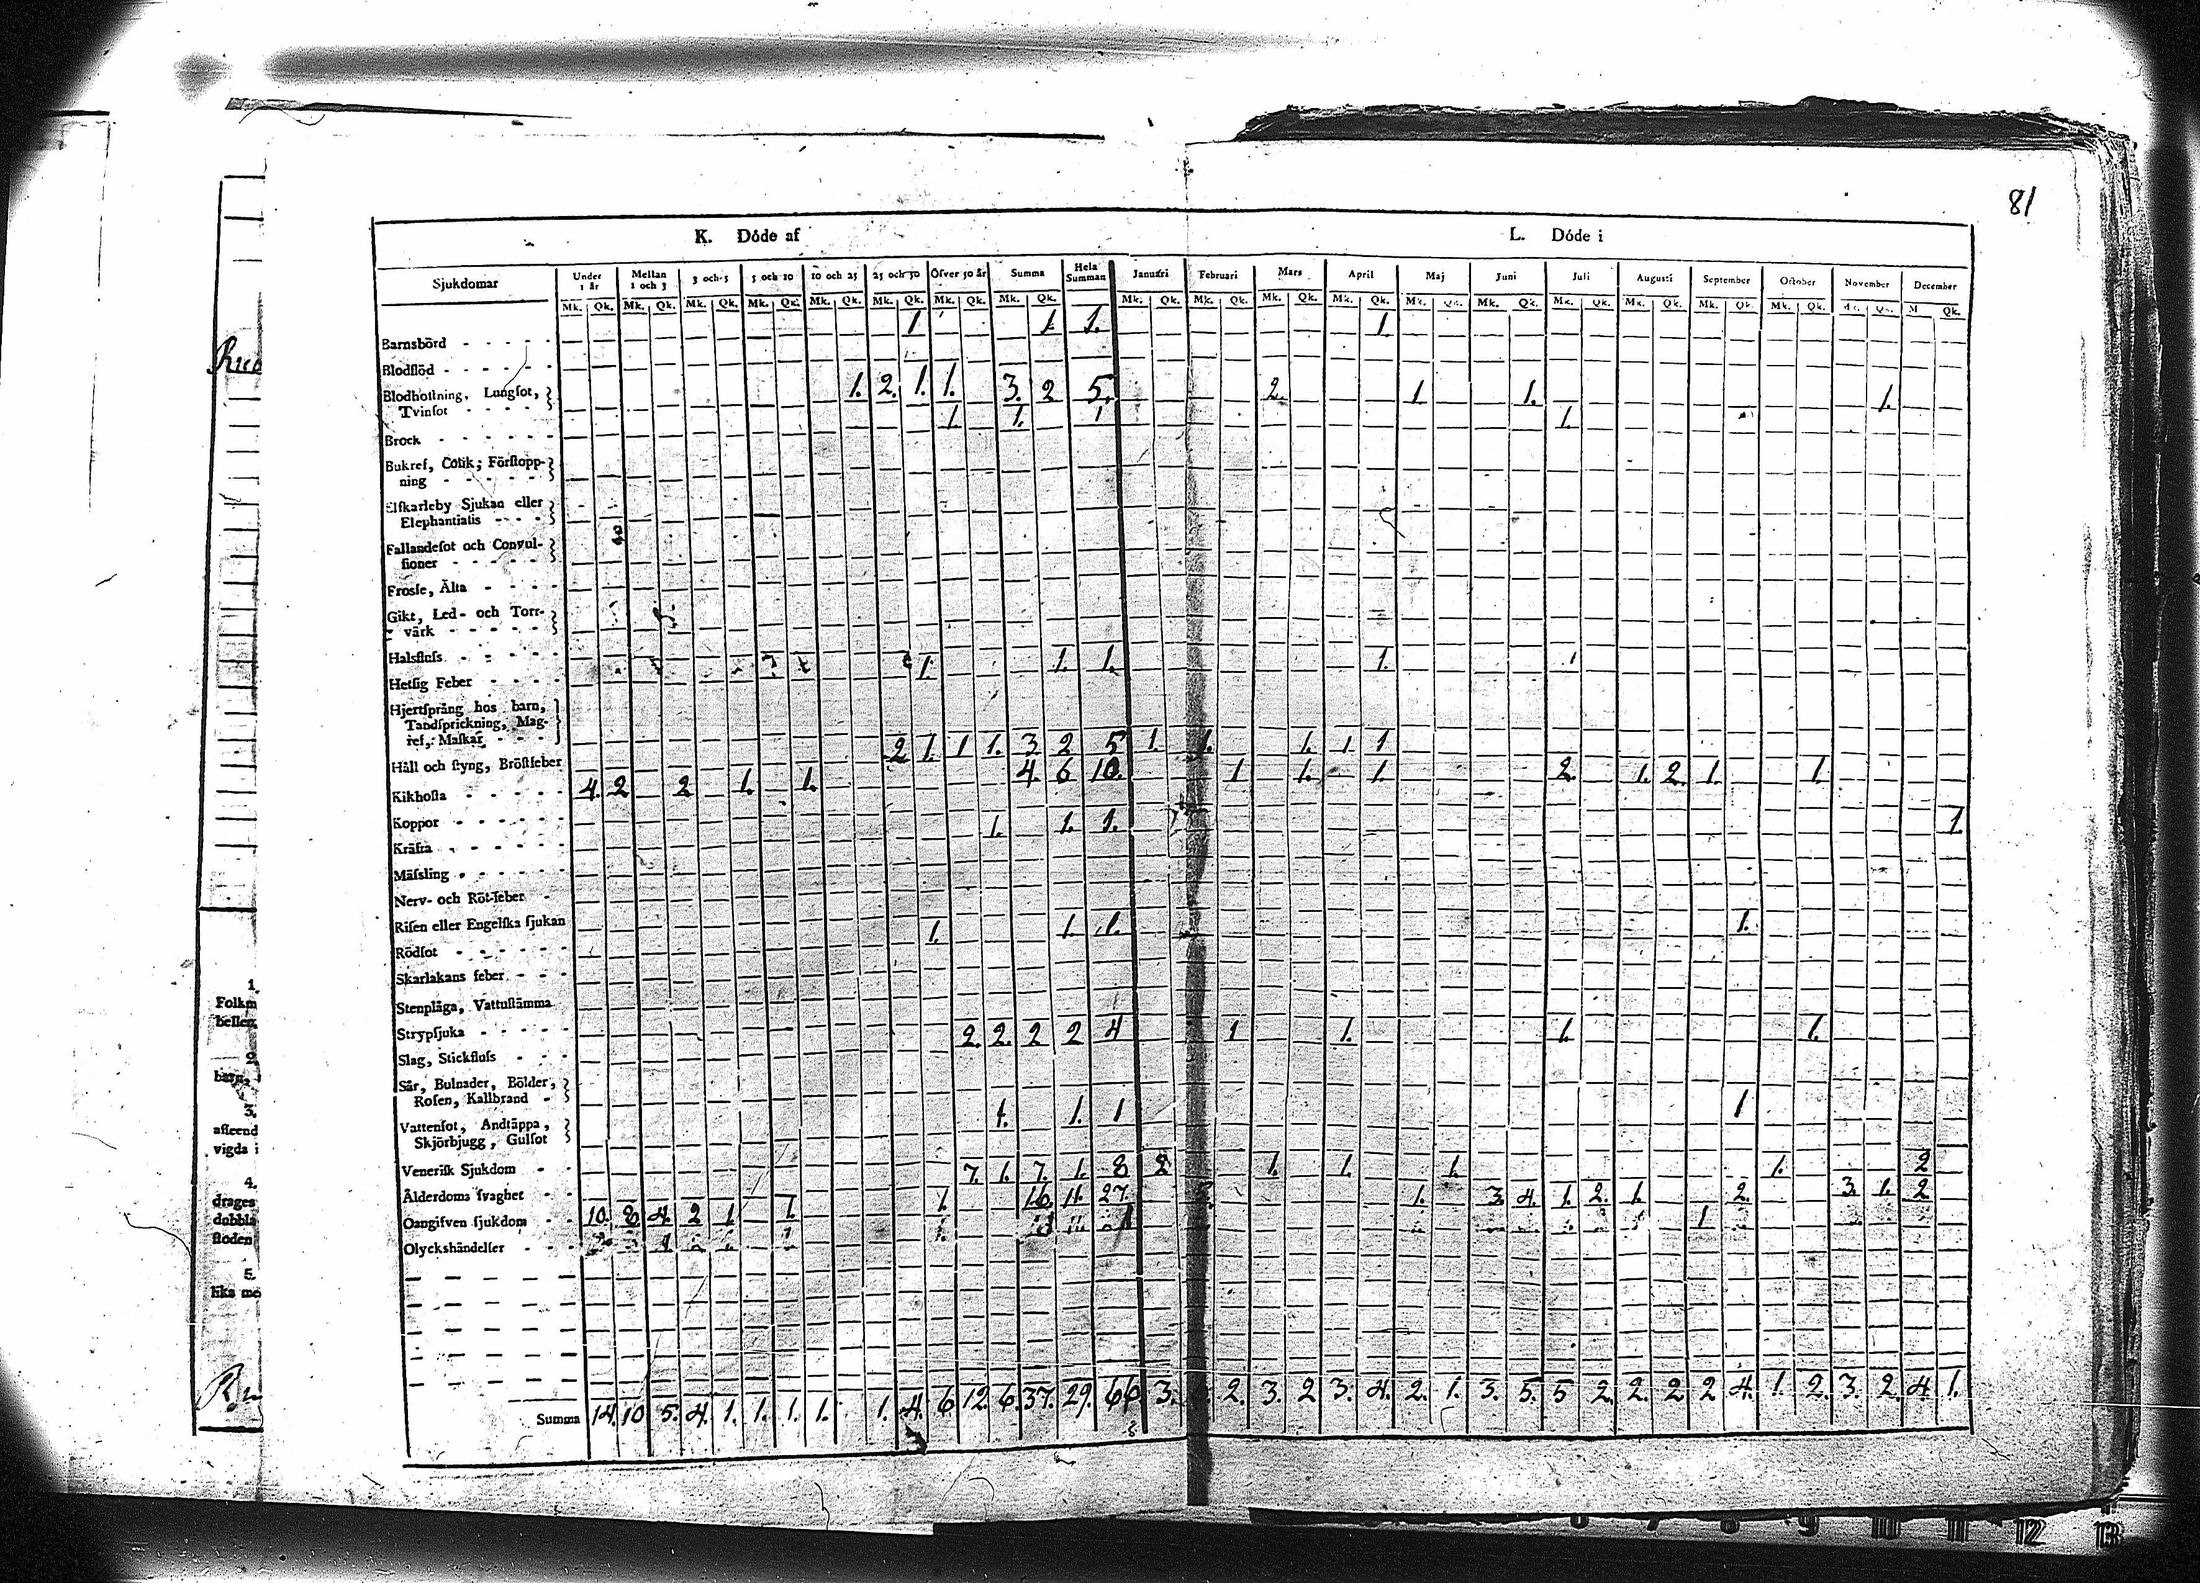 81
K. Döde af
L. Döde i
Sjukdomar Under 1 år Mellan 1 och 3 3 och 5 5 och 10 10 och 25 25 och 50 Öfver 50 år Summa Hela Summan Januari Februari Mars April Maj Juni Juli Augusti September October November December
Mk. Qk. Mk. Qk. Mk. Qk. Mk. Qk. Mk. Qk. Mk. Qk. Mk. Qk. Mk. Qk. Mk. Qk. Mk. Qk. Mk. Qk. Mk. Qk. Mk. Qk. Mk. Qk. Mk. Qk. Mk. Qk. Mk. Qk. Mk. Qk. Mk. Qk. M Qk.
Barnsbörd - - - - - 1 1. 1. 1.
Blodflöd - - - - - -
Blodhostning, Lungsot,
Tvinsot - - - - 1. 2. 1. 1. 3. 2 5. 2. 1 1. 1.
Brock - - - - - - 1. 1. 1 1.
Bukref, Colik, Förstopp-
ning - - - - -
Elfkarleby Sjukan eller
Elephantiasis - - - -
Fallandesot och Convul-
sioner - - - - -
Frossa, Älta - - - -
Gikt, Led- och Torr-
värk - - - - -
Halsfluss - - - - -
Hetsig Feber - - - - 1. 1. 1. 1.
Hjertsprång hos barn,
Tandsprickning, Mag-
ref, Maskar - - -
Håll och styng, Bröstfeber 2 1. 1 1. 3 2 5 1. 1. 1. 1 1
Kikhosta - - - - - 4. 2 2 1. 1. 4. 6 10. 1 1. 1. 2. 1. 2. 1. 1.
Koppor - - - - -
Kräfta - - - - - - 1. 1. 1. 1.
Mässling - - - - -
Nerv- och Röt-feber -
Risen eller Engelska sjukan
Rödsot - - - - - 1. 1. 1. 1.
Skarlakans feber - - -
Stenplåga, Vattustämma
Strypsjuka - - - - -
Slag, Stickfluss - - - 2. 2. 2 2 4 1 1. 1. 1.
Sår, Bulnader, Bölder,
Rosen, Kallbrand -
Vattensot, Andtäppa,
Skjörbjugg, Gulsot 1. 1. 1 1
Venerisk Sjukdom - -
Ålderdoms svaghet - - 7. 1. 7. 1. 8 2 1. 1. 1. 1. 2
Oangifven sjukdom - - 10. 8 4. 2 1. 1. 1. 16. 11. 27. 1. 3. 4. 1. 2. 1. 2. 3. 1. 2
Olyckshändelser - - -
Summa 14. 10 5. 4. 1. 1. 1. 1. 1. 4. 6 12. 6. 37. 29. 66. 3. 2. 3. 2 3. 4. 2. 1. 3. 5. 5 2. 2. 2 2 4. 1. 2. 3. 2. 4. 1.